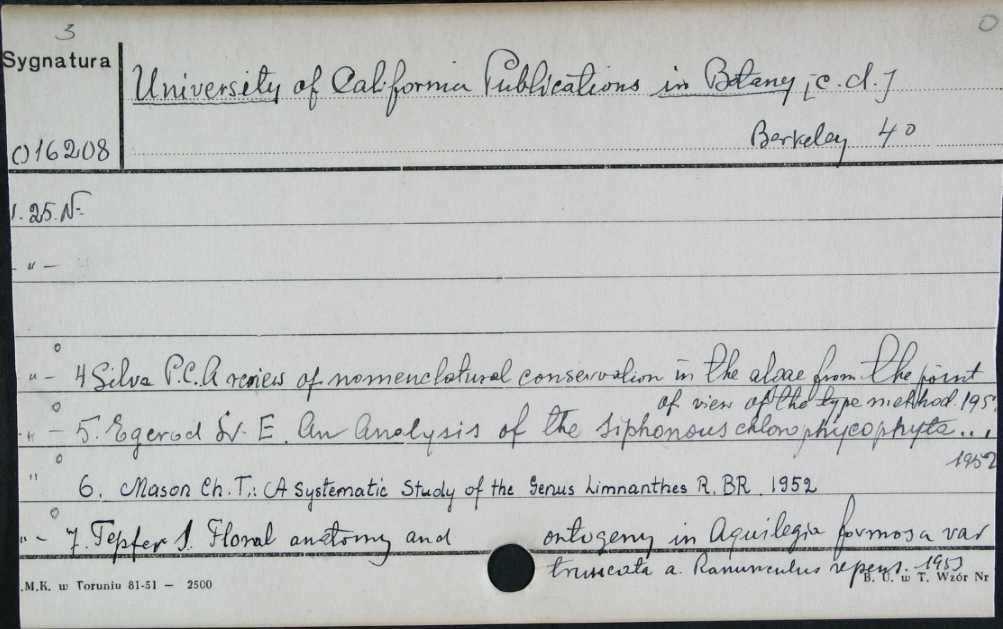 3 0
Sygnatura
University of California Publications in Botany [c.d.]
Berkeley 4o
O16208
V. 25. N-
- " -
" - 4 Silva P.C. A review of nomenclatural conservation in the algae from the point
of view of the type method. 195
" - 5. Egerod Lv. E. An Analysis of the siphonous chlorophycophyta...
1952
" 6. Mason Ch. T.: A Systematic Study of the Genus Limnanthes R. BR. 1952
" - 7. Tepfer S. Floral anatomy and ontogeny in Aquilegia formosa var
truncata a. Ranunculus repens. 1953
.M.K. w Toruniu 81-51 — 2500
B. U. w T. Wzór Nr